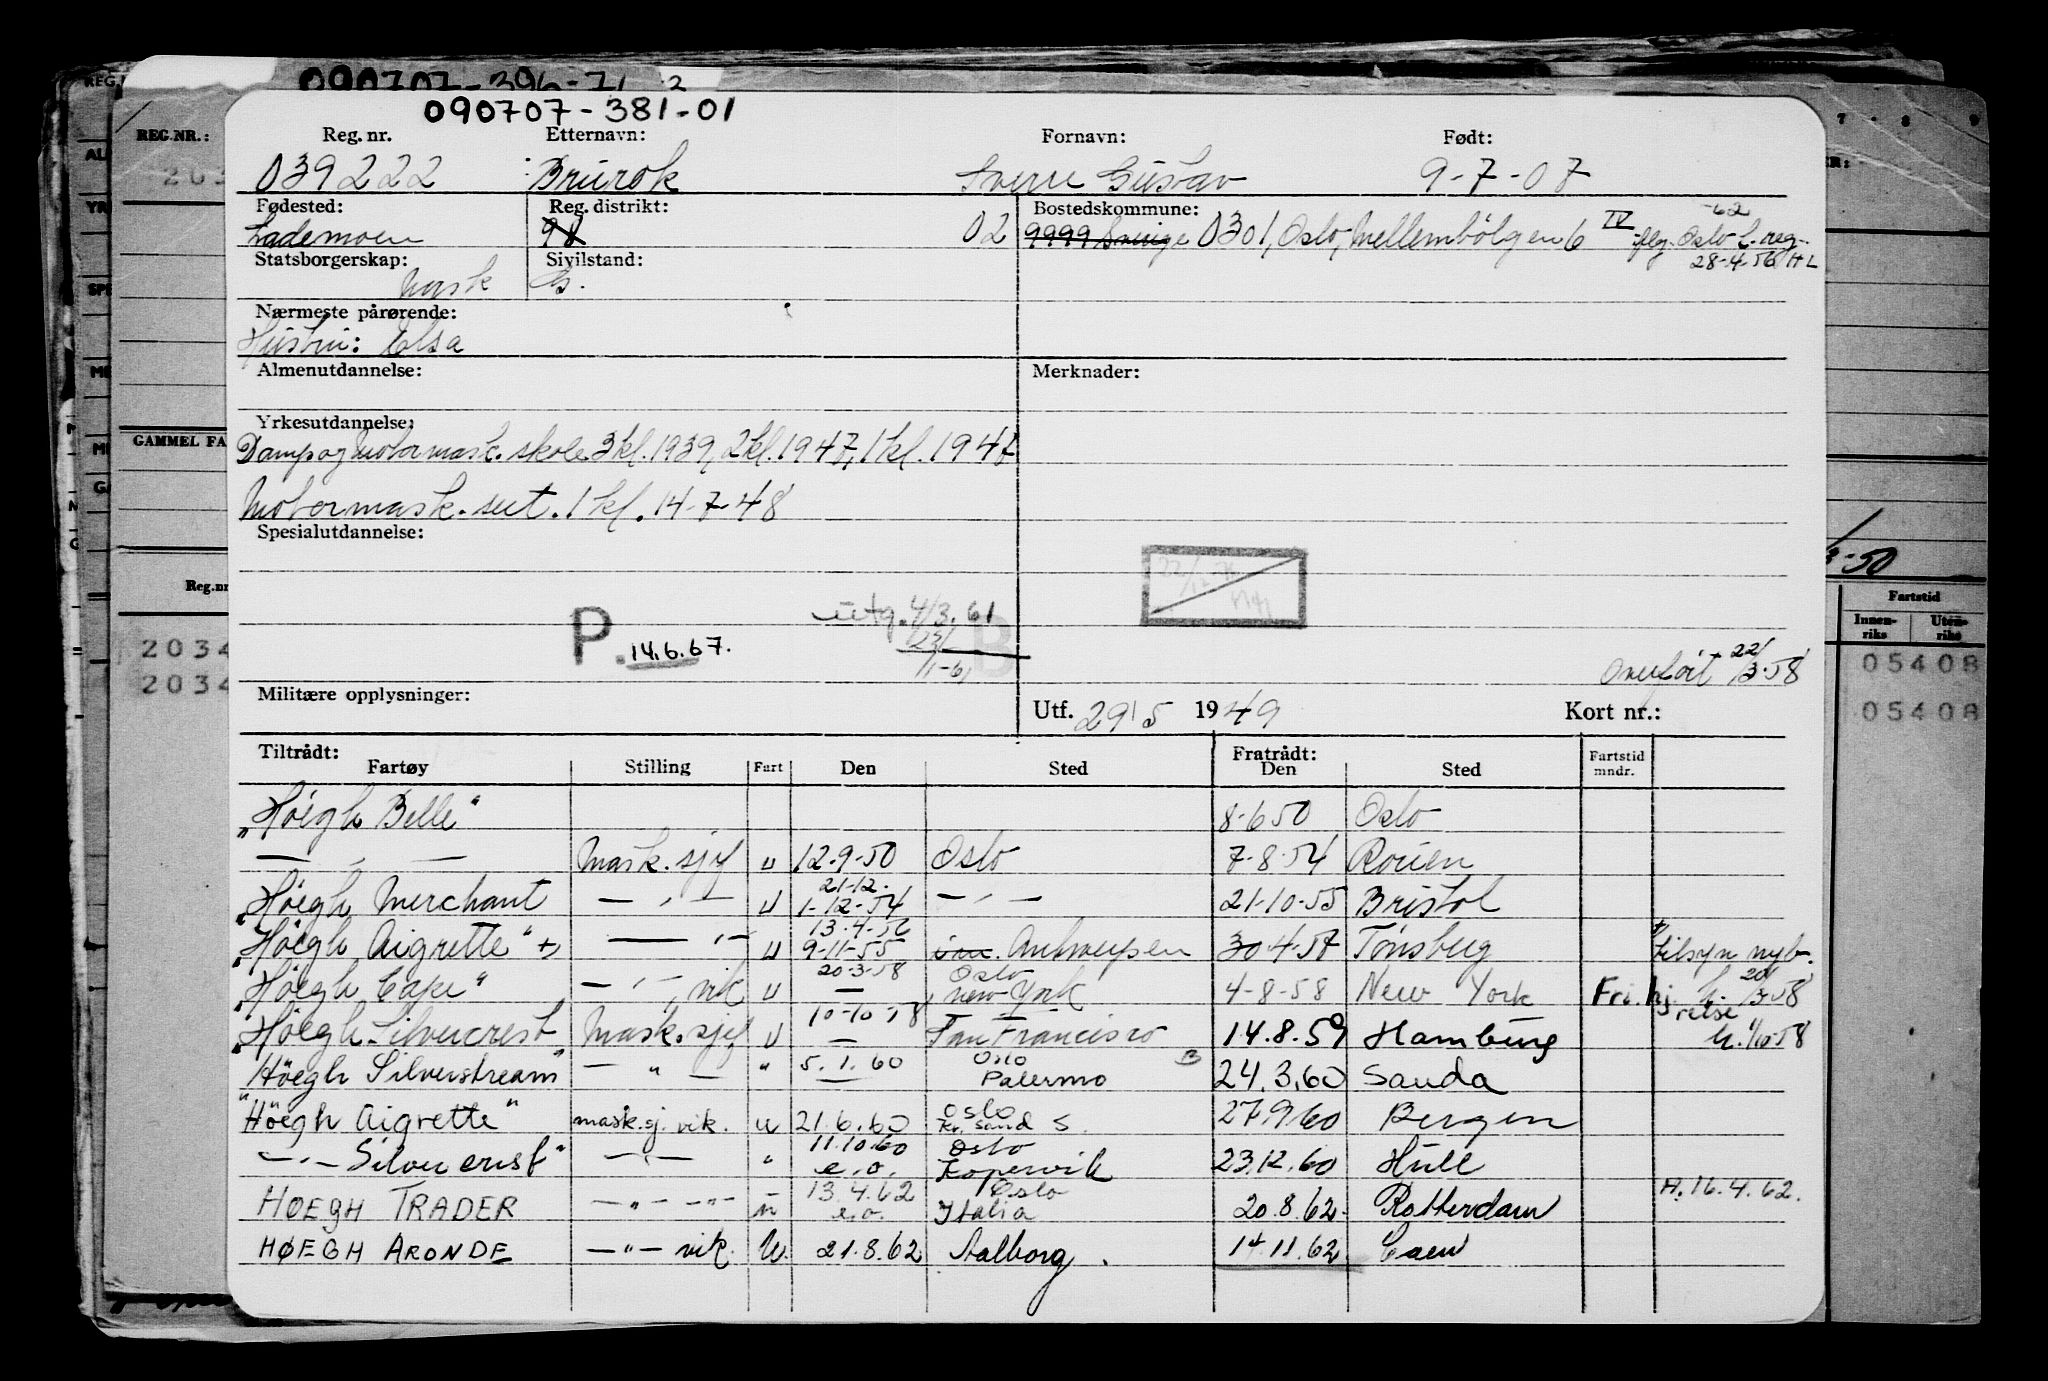 090707-396-71
090707-381-01
REG.NR.:
Reg. nr. Etternavn: Fornavn: Født:
039222 Brurok Sverre Gustav 9-7-07
Fødested: Reg. distrikt: Bostedskommune:
Lademoen 98 02 9999 Sverige 0301, Oslo, Mellembölgen 6 IV -62 flg. Oslo l. reg.
28-4-56 HL
Statsborgerskap: Sivilstand:
Norsk G.
Nærmeste pårørende:
Hustru: Elsa
Almenutdannelse: Merknader:
Yrkesutdannelse:
Damp og motormask. skole 3 kl. 1939, 2 kl. 1947, 1 kl. 1947
Motormask. sert. 1 kl. 14-7-48
Spesialutdannelse:
GAMMEL FA
P. 14.6.67. utg. 4/3.61
23/1-61
B
Overført 22/3-58
Militære opplysninger: Utf. 29/5 1949 Kort nr.:
Tiltrådt: Fratrådt:
Fartøy Stilling Fart Den Sted Den Sted Fartstid mndr.
"Höegh Belle" 8-6 50 Oslo
— " — Mask. sjef u 12-9-50 Oslo 7-8-54 Rouen
"Höegh Merchant — " — u 21-12. 1-12-54 — " — 21-10-55 Bristol
"Höegh Aigrette" +) — " — u 13-4-56 9-11-55 Antwerpen 30-4-57 Tönsberg +) tilsyn nyb.
"Höegh Cape" — " — vik u 20-3-58 — Oslo New York 4-8-58 New York Fri. hj. reise h. 20/3-58
"Höegh Silvercrest Mask. sjef u 10-10-58 — San Francisco 14.8.59 Hamburg h. 1/10-58
"Höegh Silverstream" — " — " 5.1.60 — Oslo Palermo B 24.3.60 Sauda
"Höegh Aigrette" mask.sj. vik. u 21.6.60 Oslo Kr. sand S. 27.9.60 Bergen
— " — Silvercrest" — " — " 11.10.60 e.o. Oslo Kopervik 23.12.60 Hull
HØEGH TRADER — " — — " — u 13.4.62 e.o. Oslo Italia 20.8.62 Rotterdam H. 16.4.62.
HØEGH ARONDE — " — vik. U. 21.8.62 Aalborg. 14.11.62 Caen
Reg.nr
2034
2034
3-50
Fartstid
Innenriks Utenriks
05408
05408